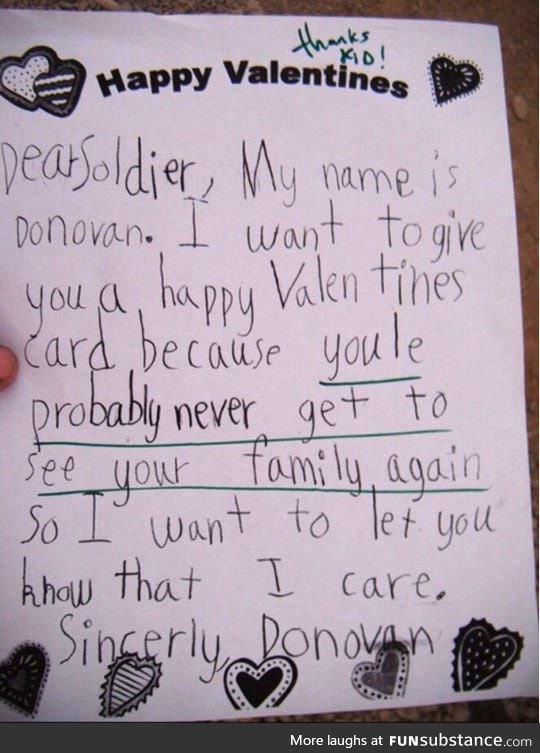 thanks
KID!
Happy Valentines
Dear Soldier, My name is
Donovan. I want to give
you a happy Valentines
card because youle
probably never get to
see your family again
So I want to let you
know that I care.
Sincerly, Donovan
More laughs at FUNsubstance.com